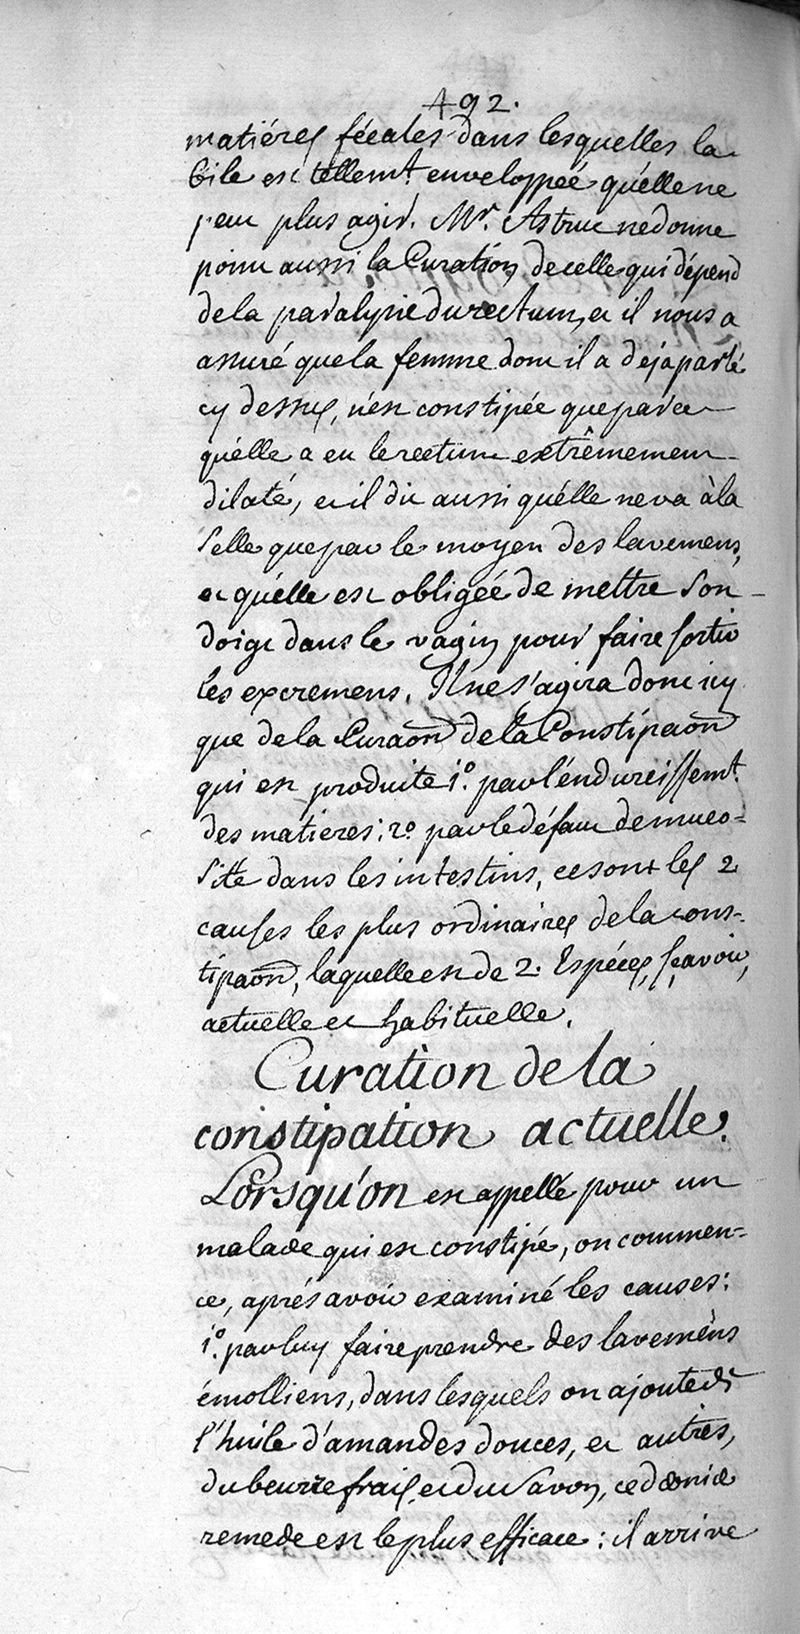 492.
matiéres fécales dans lesquelles la
bile est tellemt. enveloppée quélle ne
peut plus agir. Mr. Astruc ne donne
point aussi la Curation de celle qui dépend
de la paralysie du rectum, et il nous a
assuré que la femme dont il a déja parlé
cy dessus, n'est constipée que parce
quélle a eu le rectum extrêmement
dilaté, et il dit aussi quélle ne va à la
selle que par le moyen des lavemens,
et quélle est obligée de mettre son
doigt dans le vagin pour faire sortir
les excremens. Il ne s'agira donc icy
que de la Curaon de la Constipaon
qui est produite 1o. par l'endurcissemt.
des matieres: 2o. par le défaut de muco=
sité dans les intestins, ce sont les 2
causes les plus ordinaires de la cons=
tipaon, laquelle est de 2. Espéces, sçavoir,
actuelle et habituelle.
Curation de la
constipation actuelle.
Lorsqu'on est appellé pour un
malade qui est constipé, on commen=
ce, aprés avoir examiné les causes:
1o. par luy faire prendre des lavemens
émolliens, dans lesquels on ajoute de
l'huile d'amandes douces, et autres,
du beurre frais, et du savon, ce dernier
remede est le plus efficace: il arrive